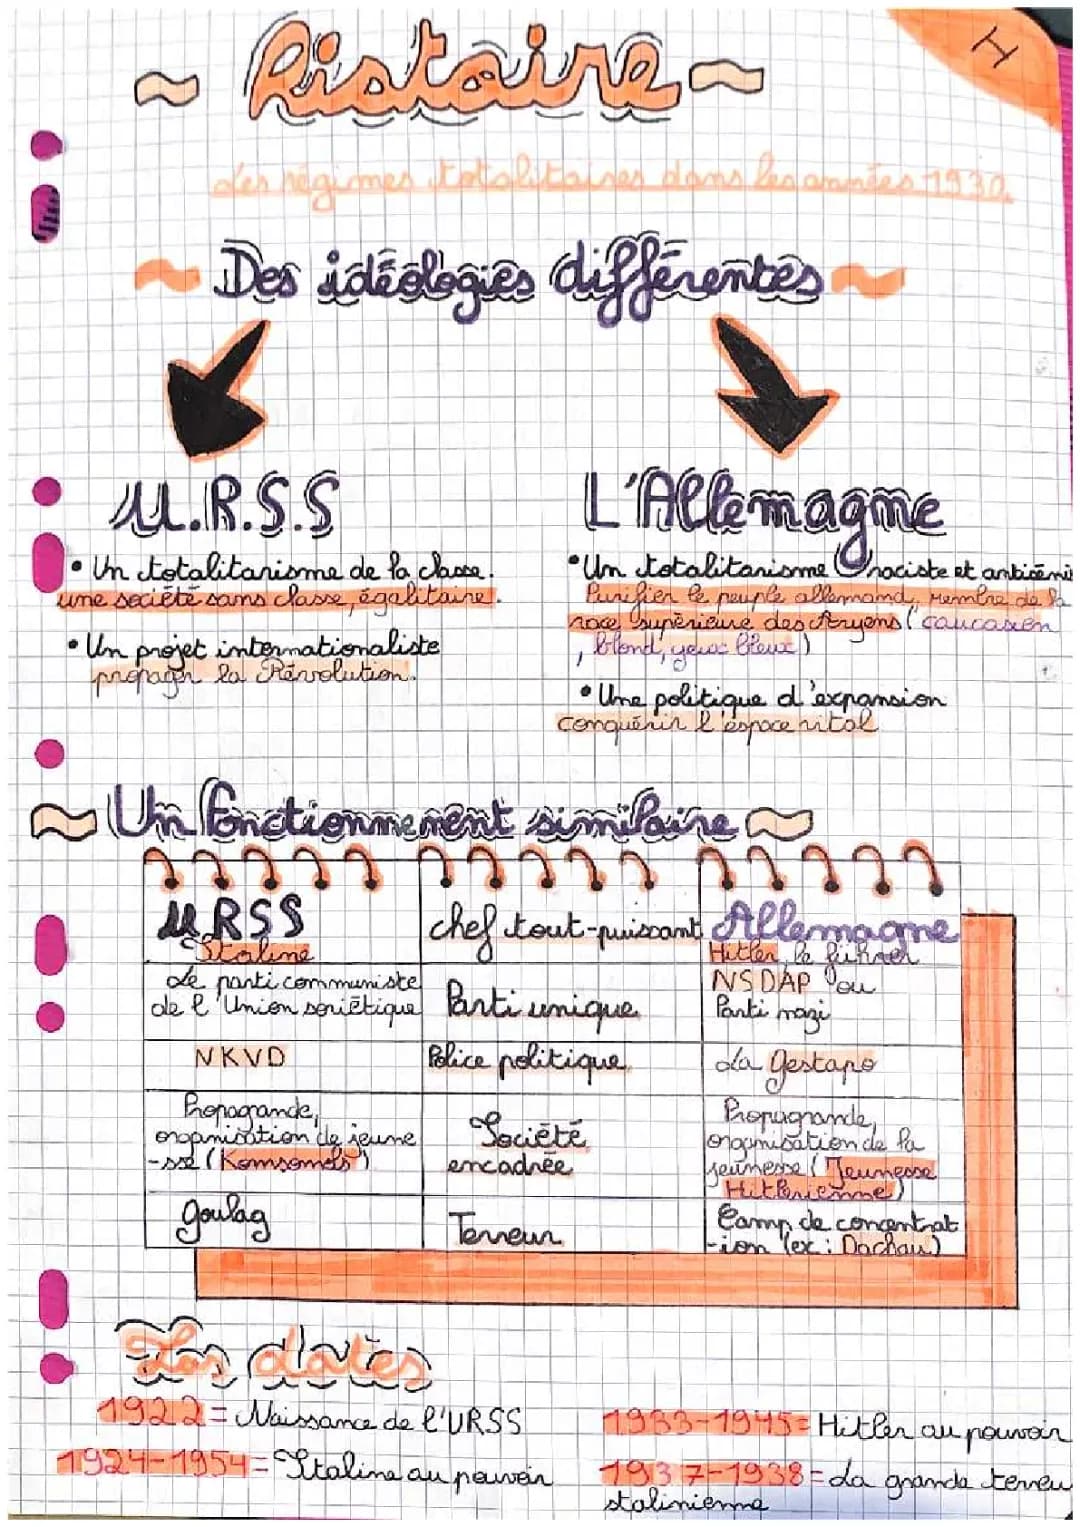 H
~ Histoire ~
Les régimes totalitaires dans les années 1930.
~ Des idéologies différentes ~
U.R.S.S
• Un totalitarisme de la classe.
une société sans classe, égalitaire.
• Un projet internationaliste
propager la Révolution.
L'Allemagne
• Un totalitarisme raciste et antisémi
Purifier le peuple allemand, membre de la
race supérieure des Aryens (caucasien
, blond, yeux bleux)
• Une politique d'expansion
conquérir l'espace vital
~ Un fonctionnement similaire ~
URSS
Staline
chef tout-puissant
Allemagne
Hitler, le führer
Le parti communiste
de l'Union soviétique
Parti unique
NSDAP ou
Parti nazi
NKVD
Police politique
La gestapo
Propagande,
organisation de jeune
-sse (Komsomols)
Société
encadrée
Propagande,
organisation de la
jeunesse (Jeunesse
Hitlérienne)
goulag
Terreur
Camp de concentrat
-ion (ex : Dachau)
Les dates
1922 = Naissance de l'URSS
1924-1954 = Staline au pouvoir
1933-1945 = Hitler au pouvoir
1937-1938 = La grande terreu
stalinienne